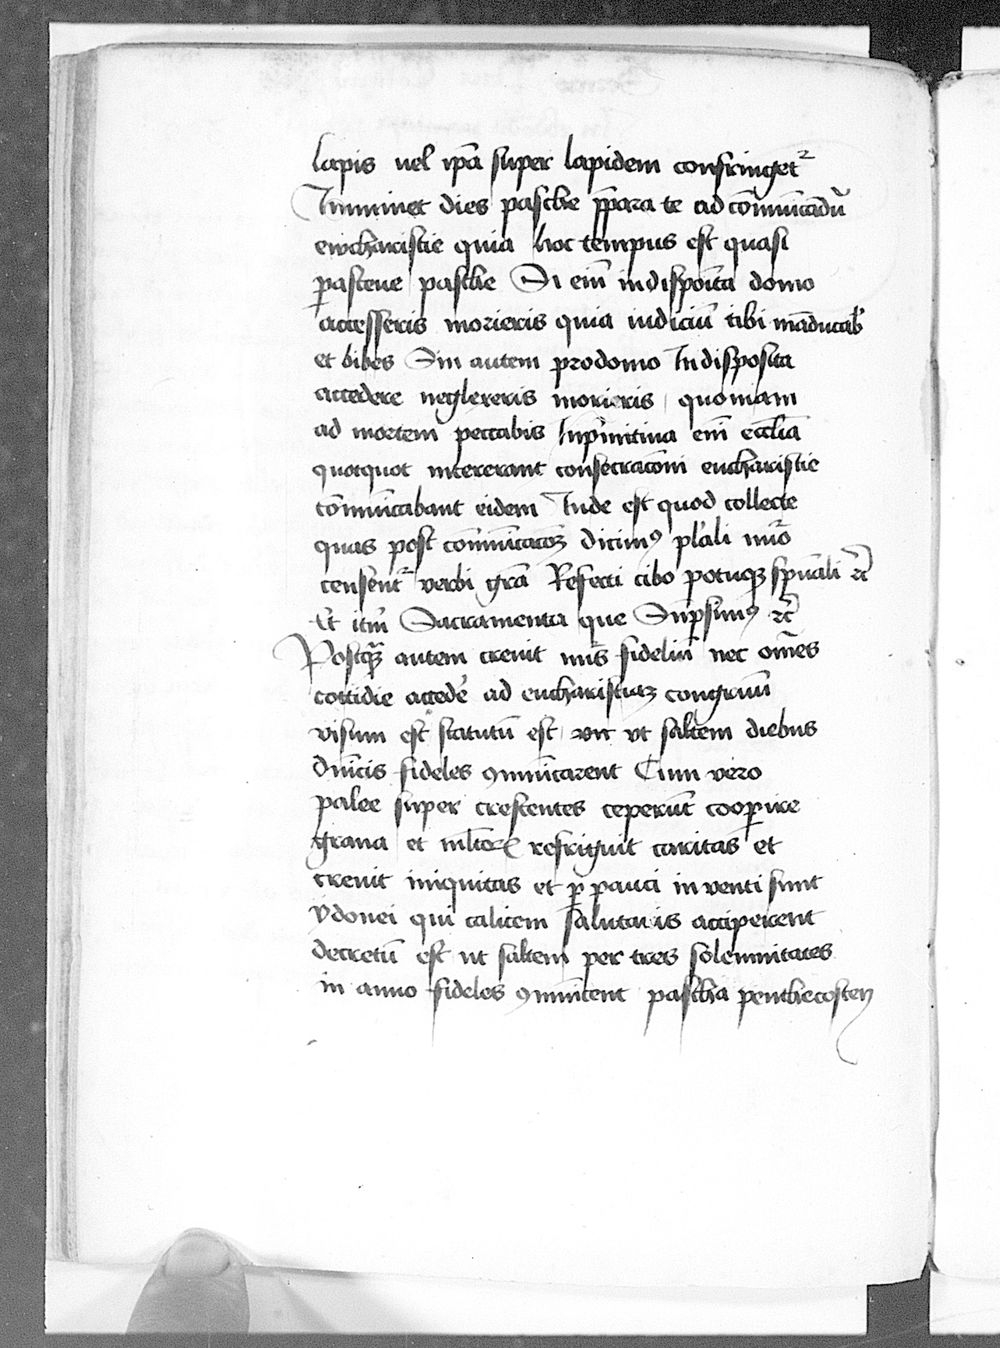 lapis vel ip̄a super lapidem confringet᷑
Imminet dies pasche p̄para te ad cōmunicādū
eucharistie quia hoc tempus est quasi
ꝑasceue pasche Si eīn indispoīta domo
accesseris morieris quia iudiciū tibi māducab̾
et bibes Sin autem pro domo Indisposita
accedere neglexeris morieris quoniam
ad mortem peccabis In pͥmitiua eīn eccl̄ia
quotquot intererant consecracōni eucharistie
cōmunicabant eidem Inde est quod collecte
quas post cōmunicacōꝫ dicimꝰ plʼali nūo
censent᷑ verbi gr̄a Refecti cibo potuqꝫ spūali ⁊c̄
Et itm̄ Sacramenta que Sūpsimꝰ ⁊c̄
Postqᷓꝫ autem creuit nūs fideliū nec om̄es
cottidie accedē ad eucharistiaꝫ congruū
visum est statutū est ut saltem diebus
dn̄icis fideles ꝯmūicarent Cum vero
palee super crescentes ceperūt cooꝑire
grana et ml̄toꝝ refriguit caritas et
creuit iniquitas et ꝑpauci inuenti sunt
ydonei qui calicem salutaris acciperent
decretū est ut saltem per tres solemnitates
in anno fideles ꝯmūicent pascha penthecosten